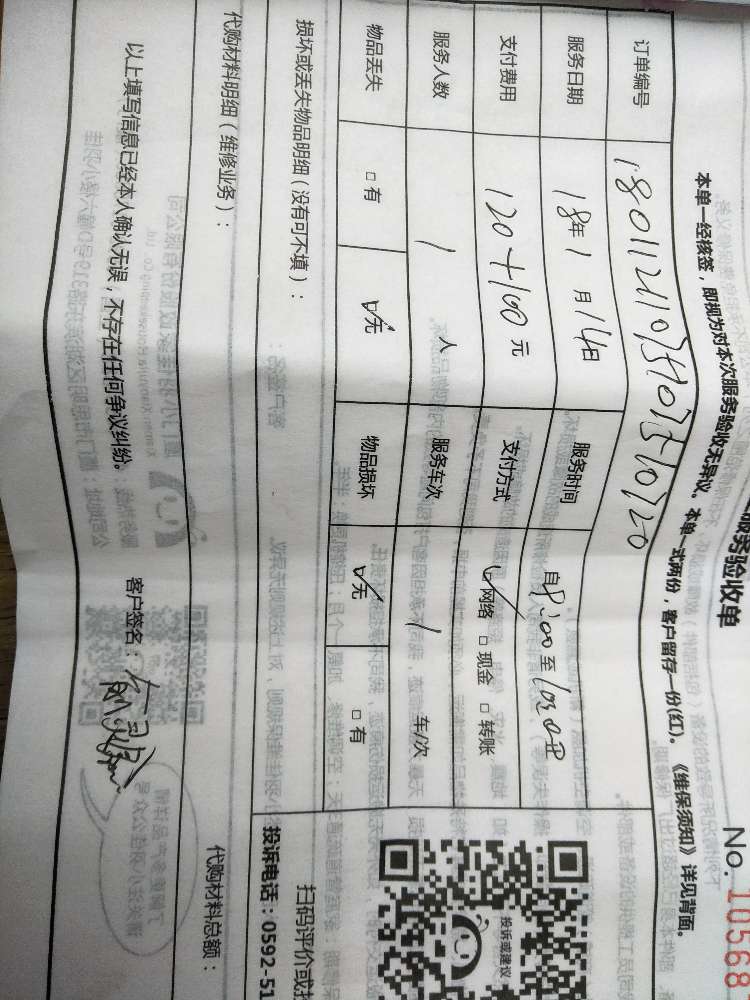 服务验收单
No. 10568
本单一经核签,即视为对本次服务验收无异议。本单一式两份,客户留存一份(红)。《维保须知》详见背面。
订单编号
服务日期 18年1月14日 服务时间 自8:00至
支付费用 120+100元 支付方式 ☑网络 □现金 □转账
服务人数 1 人 服务车次 1 车/次
物品丢失 □有 ☑无 物品损坏 ☑无 □有
投诉或建议
损坏或丢失物品明细(没有可不填):
扫码评价或
投诉电话:0592-51
代购材料明细(维修业务):
代购材料总额:
以上填写信息已经本人确认无误,不存在任何争议纠纷。 客户签名: